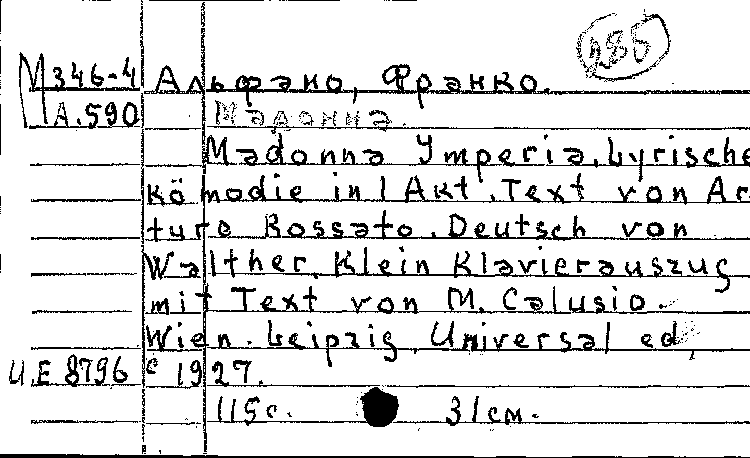 285
М346-4 Альфано, Франко.
А.590 Мадонна.
Madonna Ymperia. Lyrische
Kömodie in 1 Akt. Text von Ar
turo Rossato. Deutsch von
Walther. Klein Klavierauszug
mit Text von M. Calusio.
Wien. Leipzig, Universal ed,
U.E 8796 c 1927.
115с. 31см.